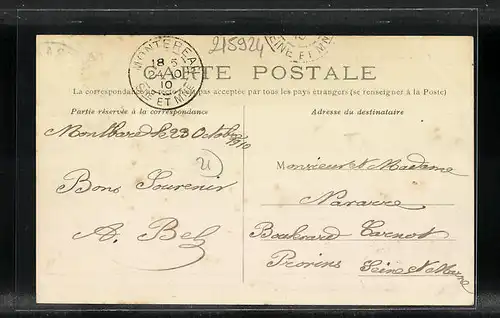 215924
MONTEREAU
18 5
24 10
10
SNE ET MNE
SEINE ET MNE
CARTE POSTALE
La correspondance pas acceptée par tous les pays étrangers (se renseigner à la Poste)
Partie réservée à la correspondance
Adresse du destinataire
Montbard le 23 Octobre
1910
Bons Souvenir
A. Bel
Monsieur et Madame
Navarre
Boulevard Carnot
Provins Seine et Marne